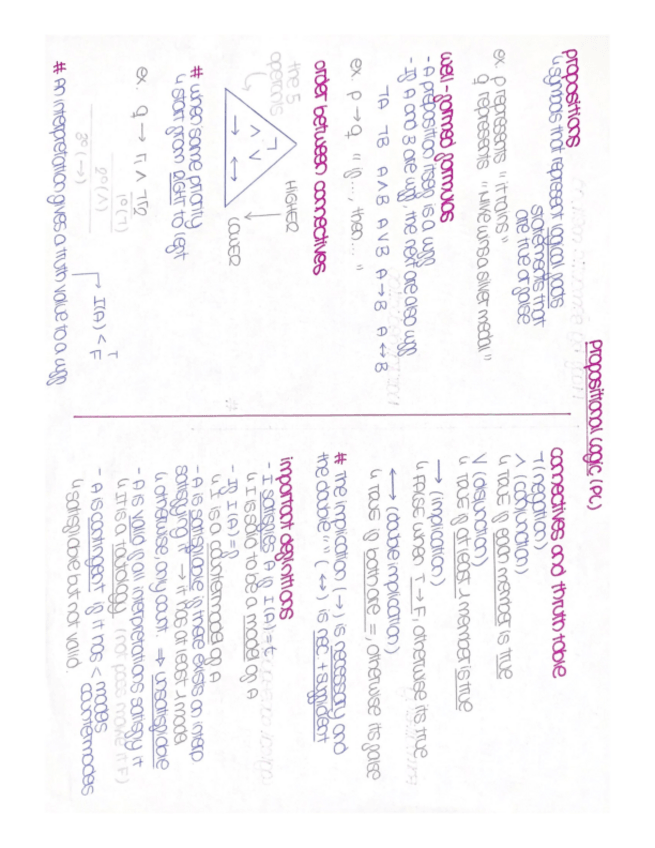 Propositional Logic (PL)
propositions
↳ symbols that represent logical facts
statements that
are true or false
ex: p represents "it rains"
q represents "wine wins a silver medal"
well-formed formulas
- A proposition itself is a wff
- If A and B are wff, the next are also wff
¬A ¬B A∧B A∨B A→B A↔B
ex: p → q "if..., then..."
order between connectives
the 5
operators
¬
∧ ∨
→ ↔
HIGHER
LOWER
# when same priority
↳ start from right to left
ex: q → r ∧ ¬p
1º (¬)
2º (∧)
3º (→)
# An interpretation gives a truth value to a wff
↳ I(A) < T
F
connectives and thruth table
¬ (negation)
∧ (conjunction)
↳ TRUE if each member is true
∨ (disjunction)
↳ TRUE if at least 1 member is true
→ (implication)
↳ FALSE when T → F, otherwise its true
↔ (double implication)
↳ TRUE if both are =, otherwise its false
# The implication (→) is necessary and
the double " " (↔) is nec + sufficient
important definitions
- I satisfies A if I(A) = t
↳ I is said to be a model of A
- If I(A) = f
↳ I is a countermodel of A
- A is satisfiable if there exists an interp
satisfying it → it has at least 1 model
↳ otherwise, only count. ⇒ unsatisfiable
- A is valid if all interpretations satisfy it
↳ It is a tautology
- A is contingent if it has < models
countermodels
↳ satisfiable but not valid